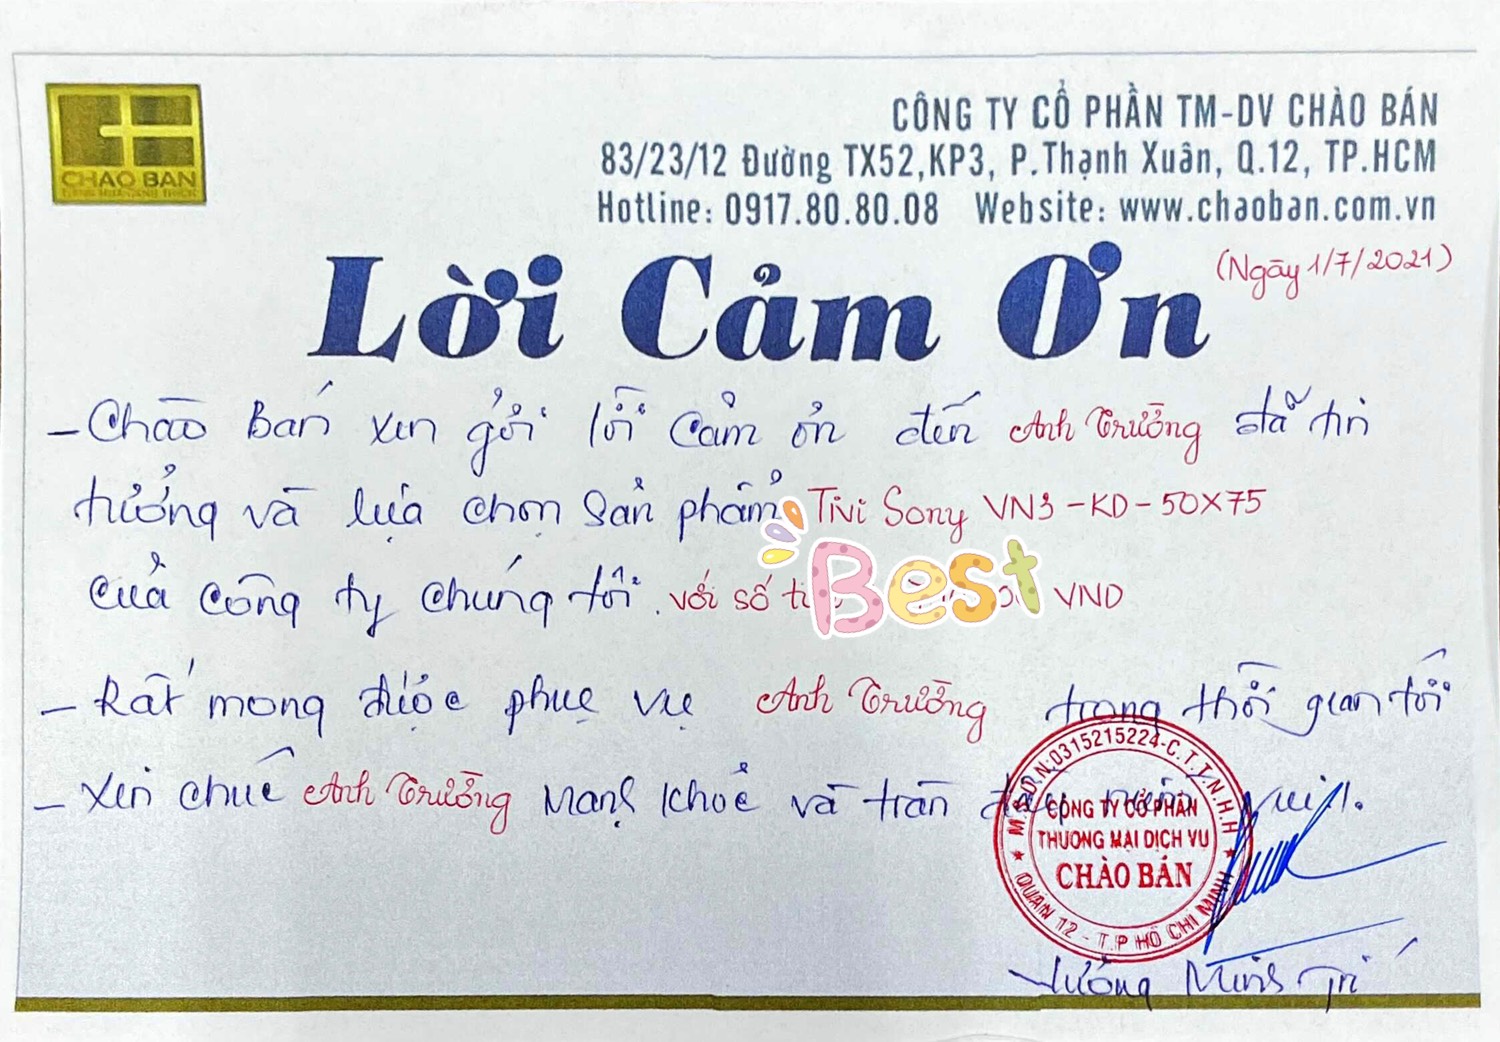 CHAO BAN
CÔNG TY CỔ PHẦN TM-DV CHÀO BÁN
83/23/12 Đường TX52,KP3, P.Thạnh Xuân, Q.12, TP.HCM
Hotline: 0917.80.80.08 Website: www.chaoban.com.vn
Lời Cảm Ơn
(Ngày 1/7/2021)
- Chào Bán xin gởi lời cảm ơn đến Anh Trường đã tin
tưởng và lựa chọn sản phẩm Tivi Sony VN3-KD-50X75
của công ty chúng tôi. với số VND
Best
- Rất mong được phục vụ Anh Trường trong thời gian tới
- Xin chúc Anh Trường mạnh khoẻ và tràn đầy niềm vui!.
M.S.D.N:0315215224-C.T.T.N.H.H
CÔNG TY CỔ PHẦN
THƯƠNG MẠI DỊCH VỤ
CHÀO BÁN
QUẬN 12 - T.P HỒ CHÍ MINH
Minh Trí